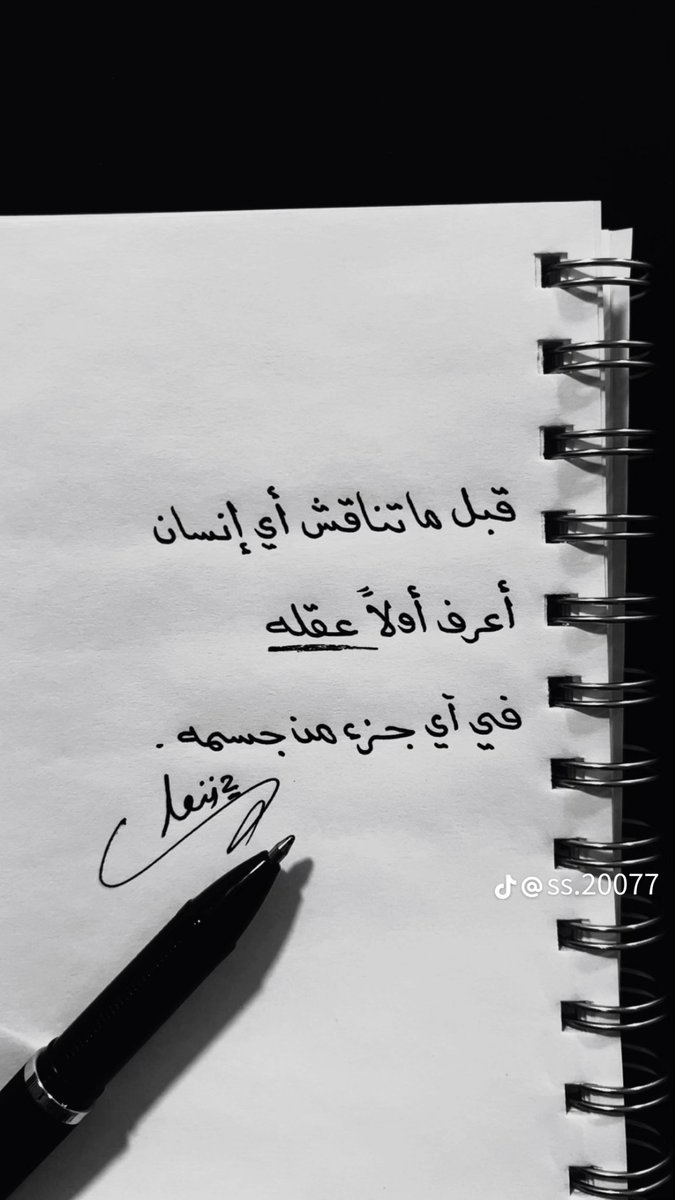 قبل ما تناقش أي إنسان
أعرف أولاً عقله
في آي جزء من جسمه .
@ss.20077